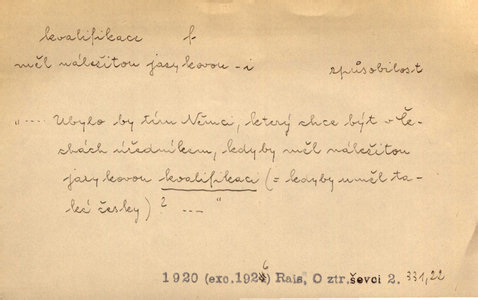 kvalifikaci f.
měl náležitou jazykovou -i způsobilost
".... Ubylo by tím Němci, který chce být v Če-
chách úředníkem, kdyby měl náležitou
jazykovou kvalifikaci (= kdyby uměl ta-
ké česky) ? .... "
1920 (exc. 1926) Rais, O ztr. ševci 2. 331,22